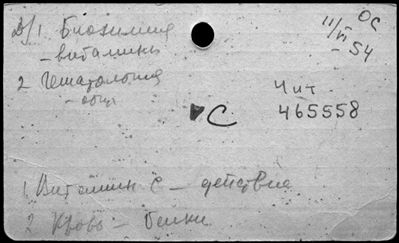 1. Биохимия
- витамины
2 Гематология
- общ
ОС
11/VI
- 54
Чит
465558
С
1 Витамин С - действие
2 Кровь - белки